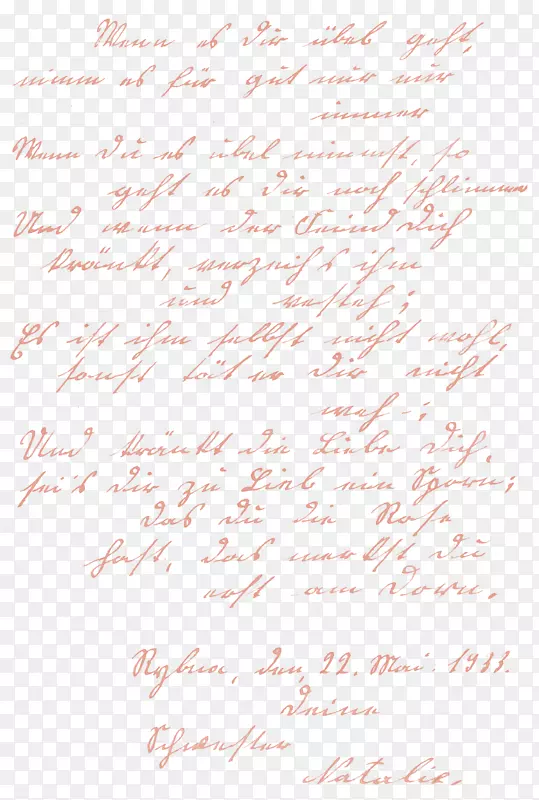 Wenn es dir übel geht,
nimm es für gut nur nur
immer
Wenn du es übel nimmst, so
geht es dir noch schlimmer
Und wenn der Feind dich
kränkt, verzeih's ihm
und versteh;
Es ist ihm selbst nicht wohl,
sonst tät er dir nicht
weh-;
Und kränkt die Liebe dich,
sei's dir zu Lieb ein Sporn;
das du die Rose
hast, das merkst du
erst am Dorn.
Rybna, den, 22. Mai. 1933.
Deine
Schwester
Natalie.